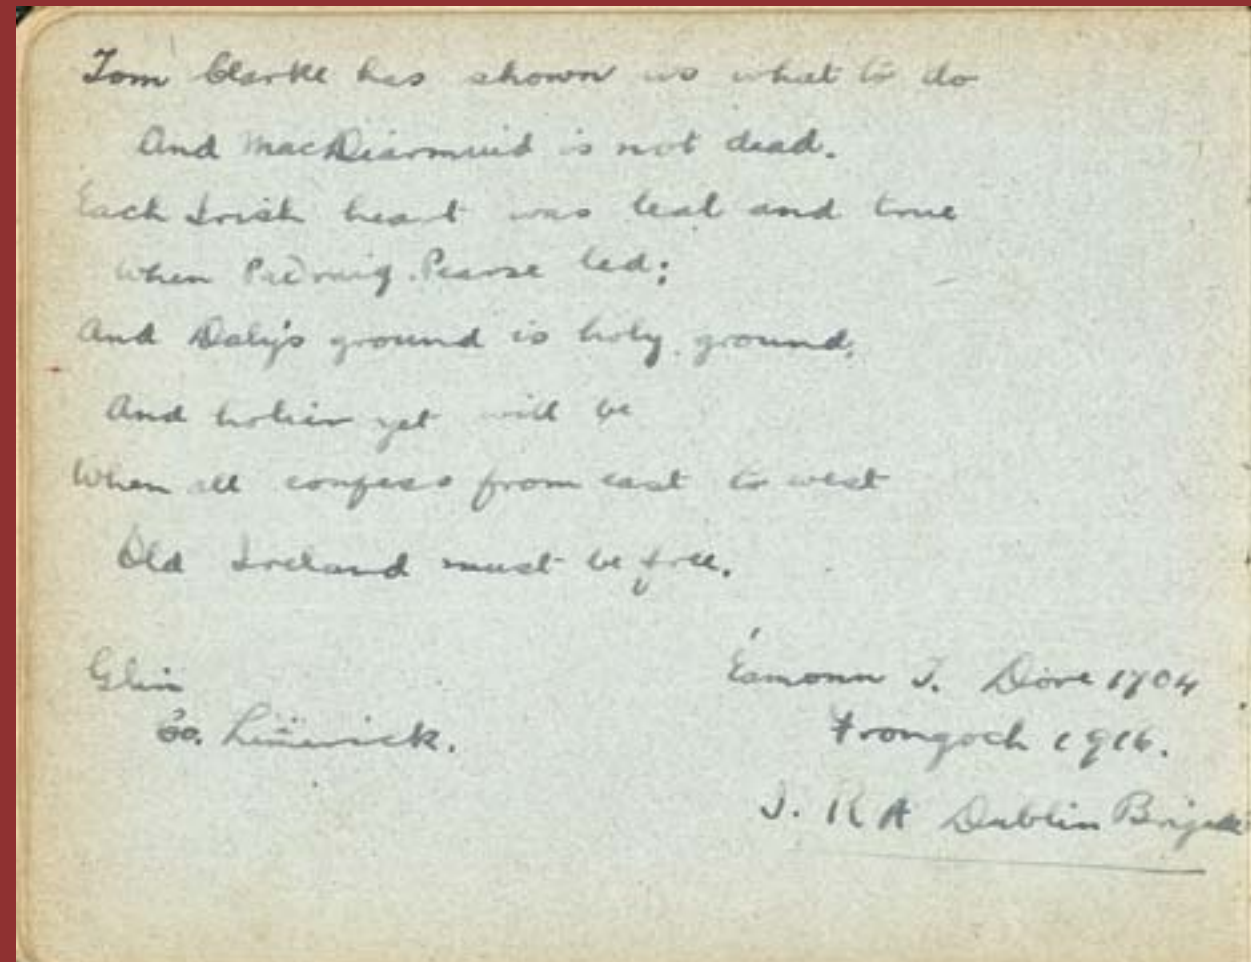 Tom Clarke has shown us what to do
And MacDiarmuid is not dead.
Each Irish heart was leal and true
When Padraig Pearse led;
And Daly's ground is holy ground,
And holier yet will be
When all confess from east to west
Old Ireland must be free.
Glin
Co. Limerick.
Éamonn T. Dore 1704
Frongoch 1916.
I. R A Dublin Brigade